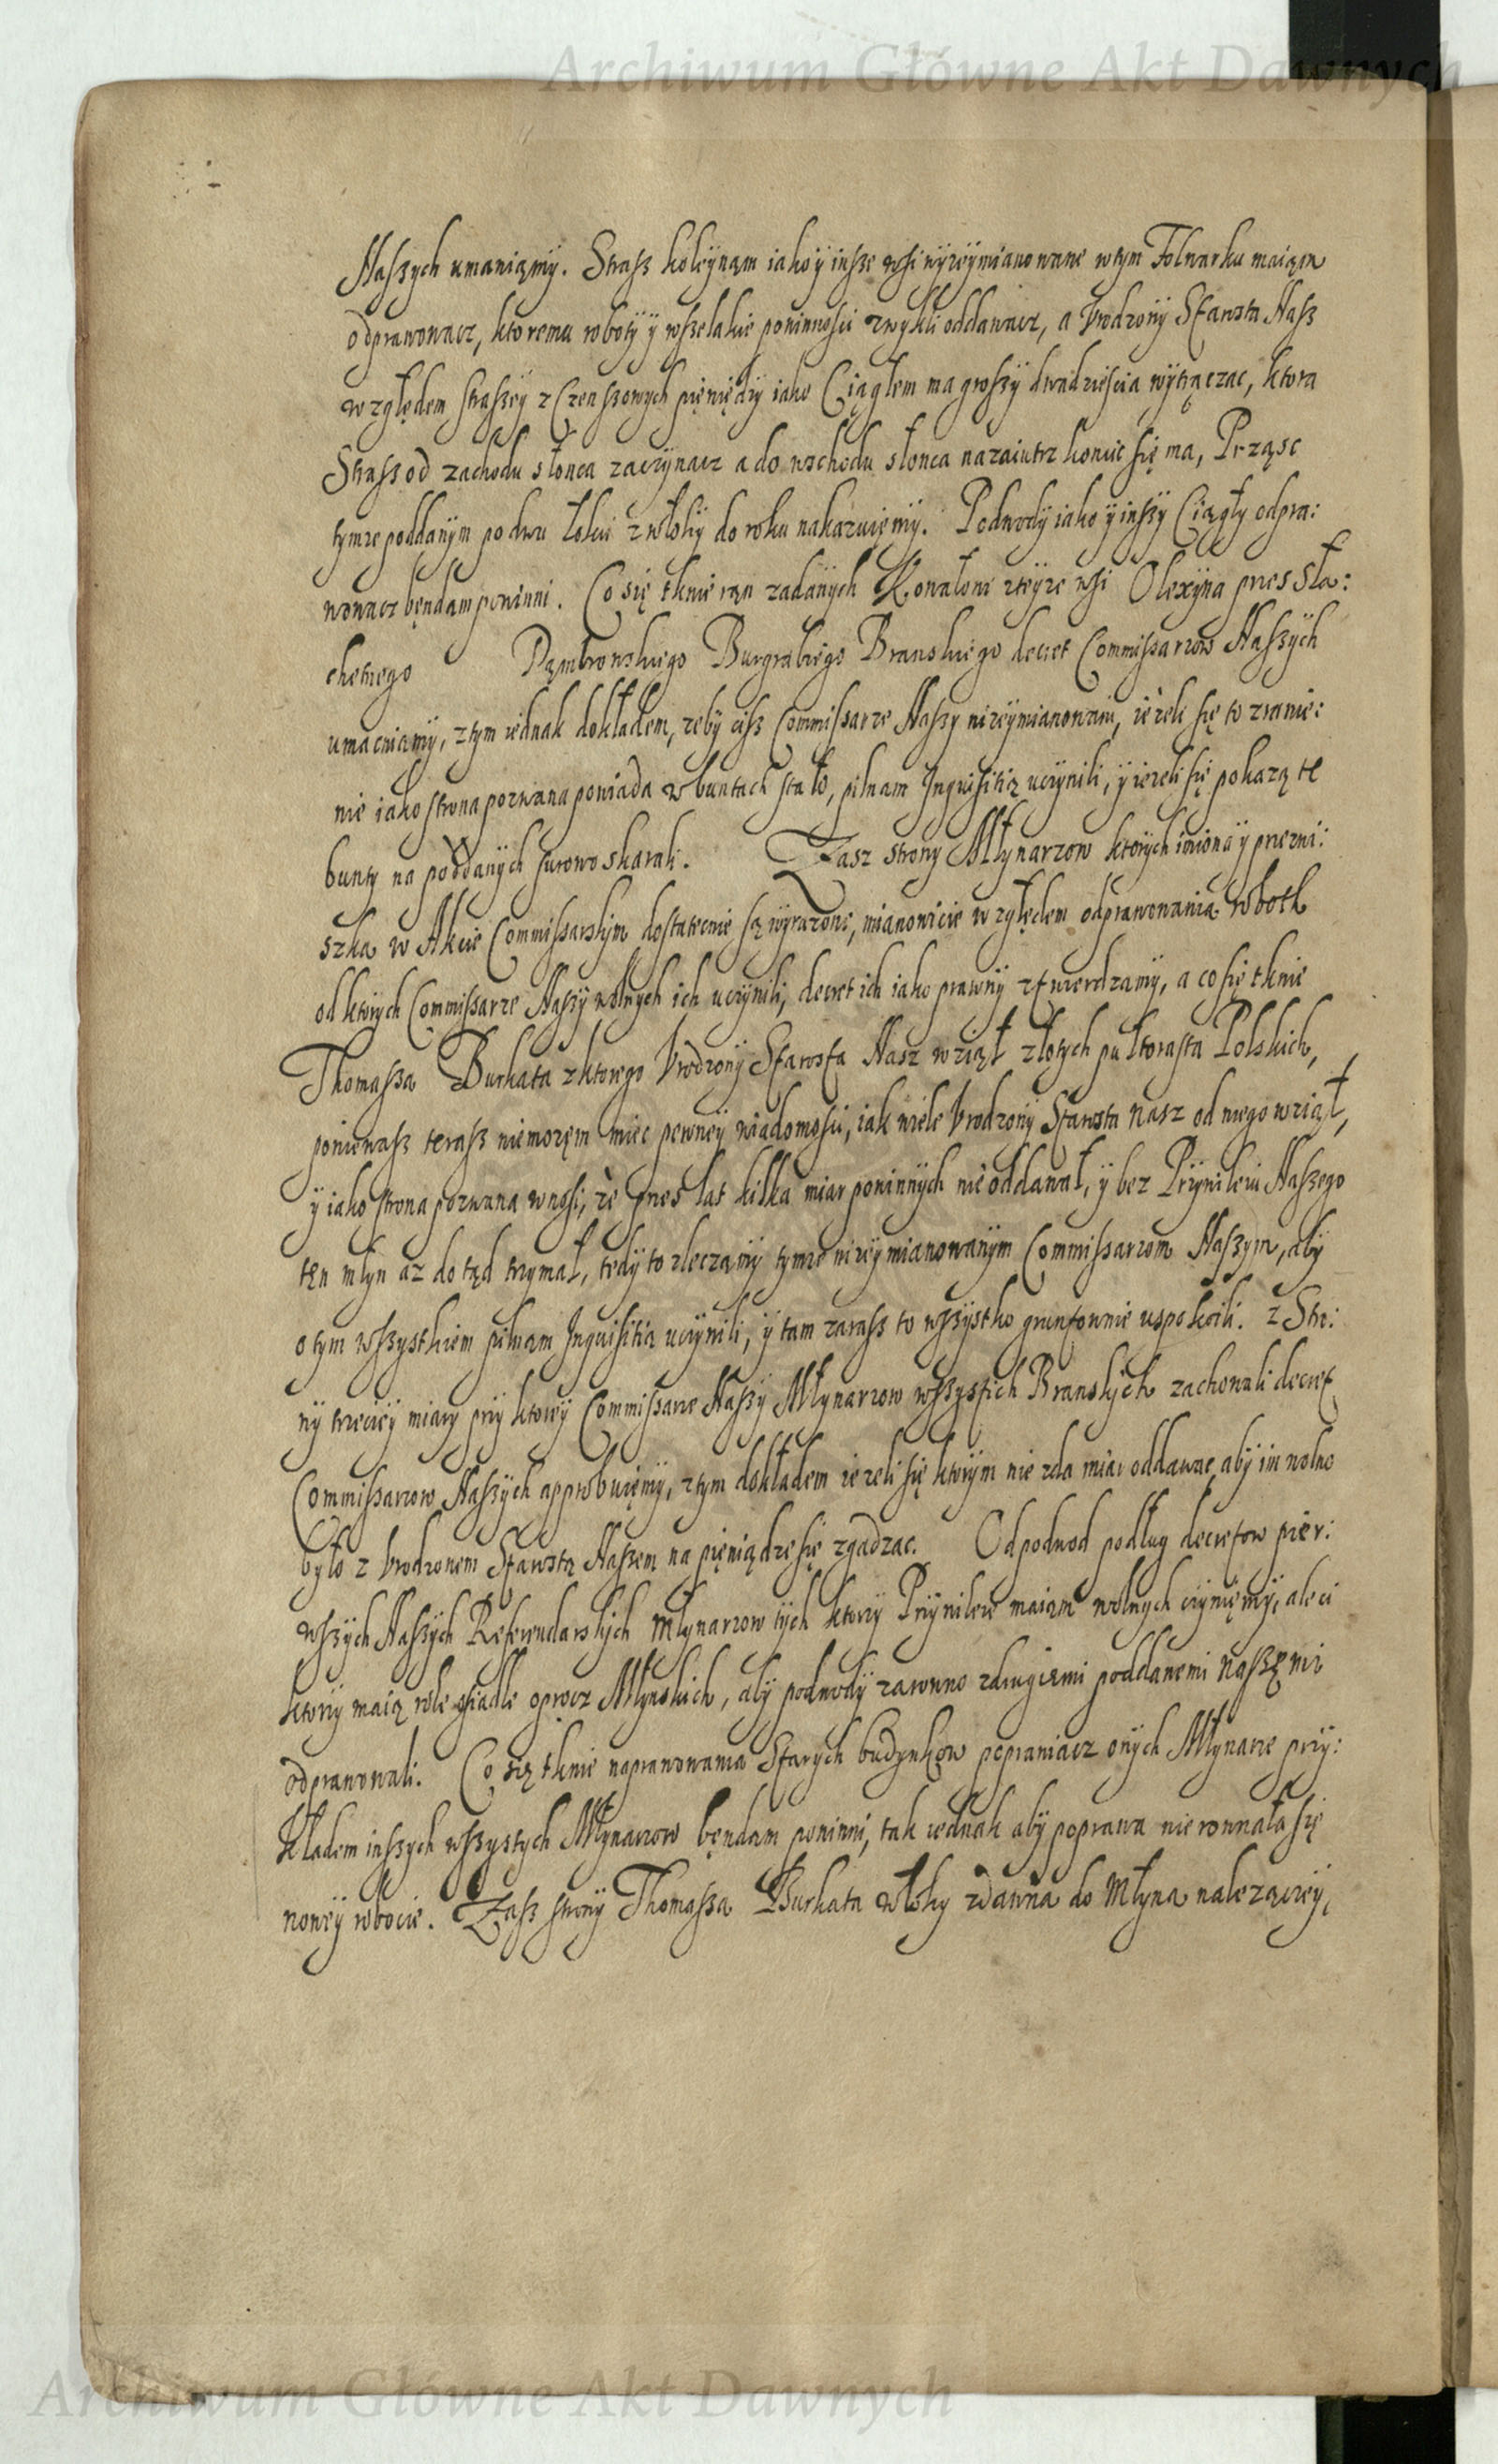 Archiwum Główne Akt Dawnych
Naszych umaniąmy. Strasz koleynąm iako y insze wsi wyżeymianowane w tym Folwarku maiąm
odprawowacz, ktoremu roboty y wszelakie powinnosci zwykli oddawacz, a Vrodzony Starosta Nasz
względem straszey z Czenszowych pięniędzy iako Ciągłem ma groszy dwadziescia wytrączac, ktora
Strasz od zachodu słonca zaczynacz a do wschodu słonca nazaiutrz koncic się ma, Prząsc
tymże poddanym po dwu łokci z włoky do roku nakazuięmy. Podwody iako y inszy Ciągły odpra:
wowacz będam powinni. Co się tknie ran zadanych Kowalowi zteyże wsi Olexyna przes Sla:
chetnego Dąmbrowskiego Burgrabiego Branskiego decret Commissarzow Naszych
umacniamy, z tym iednak dokładem, żeby cisz Commissarze Naszy niżeymianowani, ieżeli się to zranie:
nie iako strona pozwana powiada w buntach stało, pilnam Inquisitią uczynili, y iezeli się pokażą te
bunty na poddanych surowo skarali. Zasz strony Młynarzow ktorych imiona y przezwi:
szka w Akcie Commissarskym dostatecnie są wyrazone, mianowicie względem odprawowania robotk
od ktorych Commissarze Naszy wolnych ich uczynili, decret ich iako prawny ztwierdzamy, a co się tknie
Thomasza Burkata z ktorego Vrodzony Starosta Nasz wziął złotych pułtorasta Polskich,
poniewasz terasz niemożęm miec pewney wiadomosci, iak wiele Vrodzony Starosta Nasz od niego wziął,
y iako strona pozwana wnosi, że przes lat kilka miar powinnych nie oddawał, y bez Przywileiu Naszego
tęn młyn aż do tąd trzymał, tedy to zleczamy tymże niżey mianowanym Commissarzom Naszym, aby
o tym wszystkiem pilnąm Inquisitią uczynili, y tam zarasz to wszystko gruntownie uspokoili. z Stro:
ny trzeciey miary przy ktorey Commissarze Naszy Młynarzow wszystkich Branskych zachowali decret
Commissarzow Naszych approbuięmy, z tym dokładem iezeli się ktorym nie zda miar oddawac, aby im wolno
było z Vrodzonem Starostą Naszem na pięniądze się zgadzac. Od podwod podług decretow pier:
wszych Naszych Referendarskych Młynarzow tych ktorzy Przywileie maiąm wolnych czynięmy, ale ci
ktorzy maią role osiadłe oprocz Młynskich, aby podwody zarowno z drugiemi poddanemi Naszęmi
odprawowali. Co się tknie naprawowania Starych budynkow poprawiacz onych Młynarze przy:
kładem inszych wszystych Młynarzow będam powinni, tak iednak aby poprawa nierownała się
nowey robocie. Zasz strony Thomasza Burkata włoky zdawna do Młyna nalezączey,
Archiwum Główne Akt Dawnych